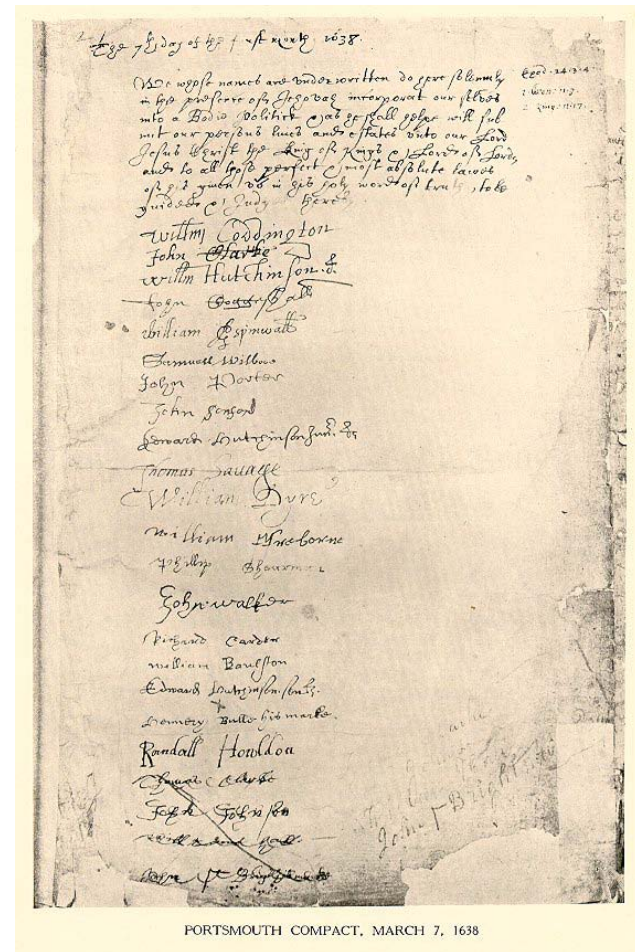 The 7th day of the first month 1638.
We whose names are underwritten do here solemnly
in the presence of Jehovah incorporat our selves
into a Bodie Politick & as he shall helpe will sub
mit our persons lives and estates unto our Lord
Jesus Christ the King of Kings & Lord of Lords
and to all those perfect & most absolute lawes
of his given us in his holy word of truth, to be
guided & Judged hereby
Exod. 24. 3. 4
2 Kings. 11. 17.
Willm Coddington
John Clarke
Willm Hutchinson
John Coggeshall
William Aspinwall
Samuell Wilbore
John Porter
John Sanford
Edward Hutchinson Junr
Thomas Savage
William Dyre
William Freborne
Phillip Shearman
John Walker
Richard Carder
William Baulston
Edward Hutchinson senr
Hennery Bull his marke
Randall Howldon
Thomas Clarke
John Johnson
William hall
John Brightman
John Bright
PORTSMOUTH COMPACT, MARCH 7, 1638